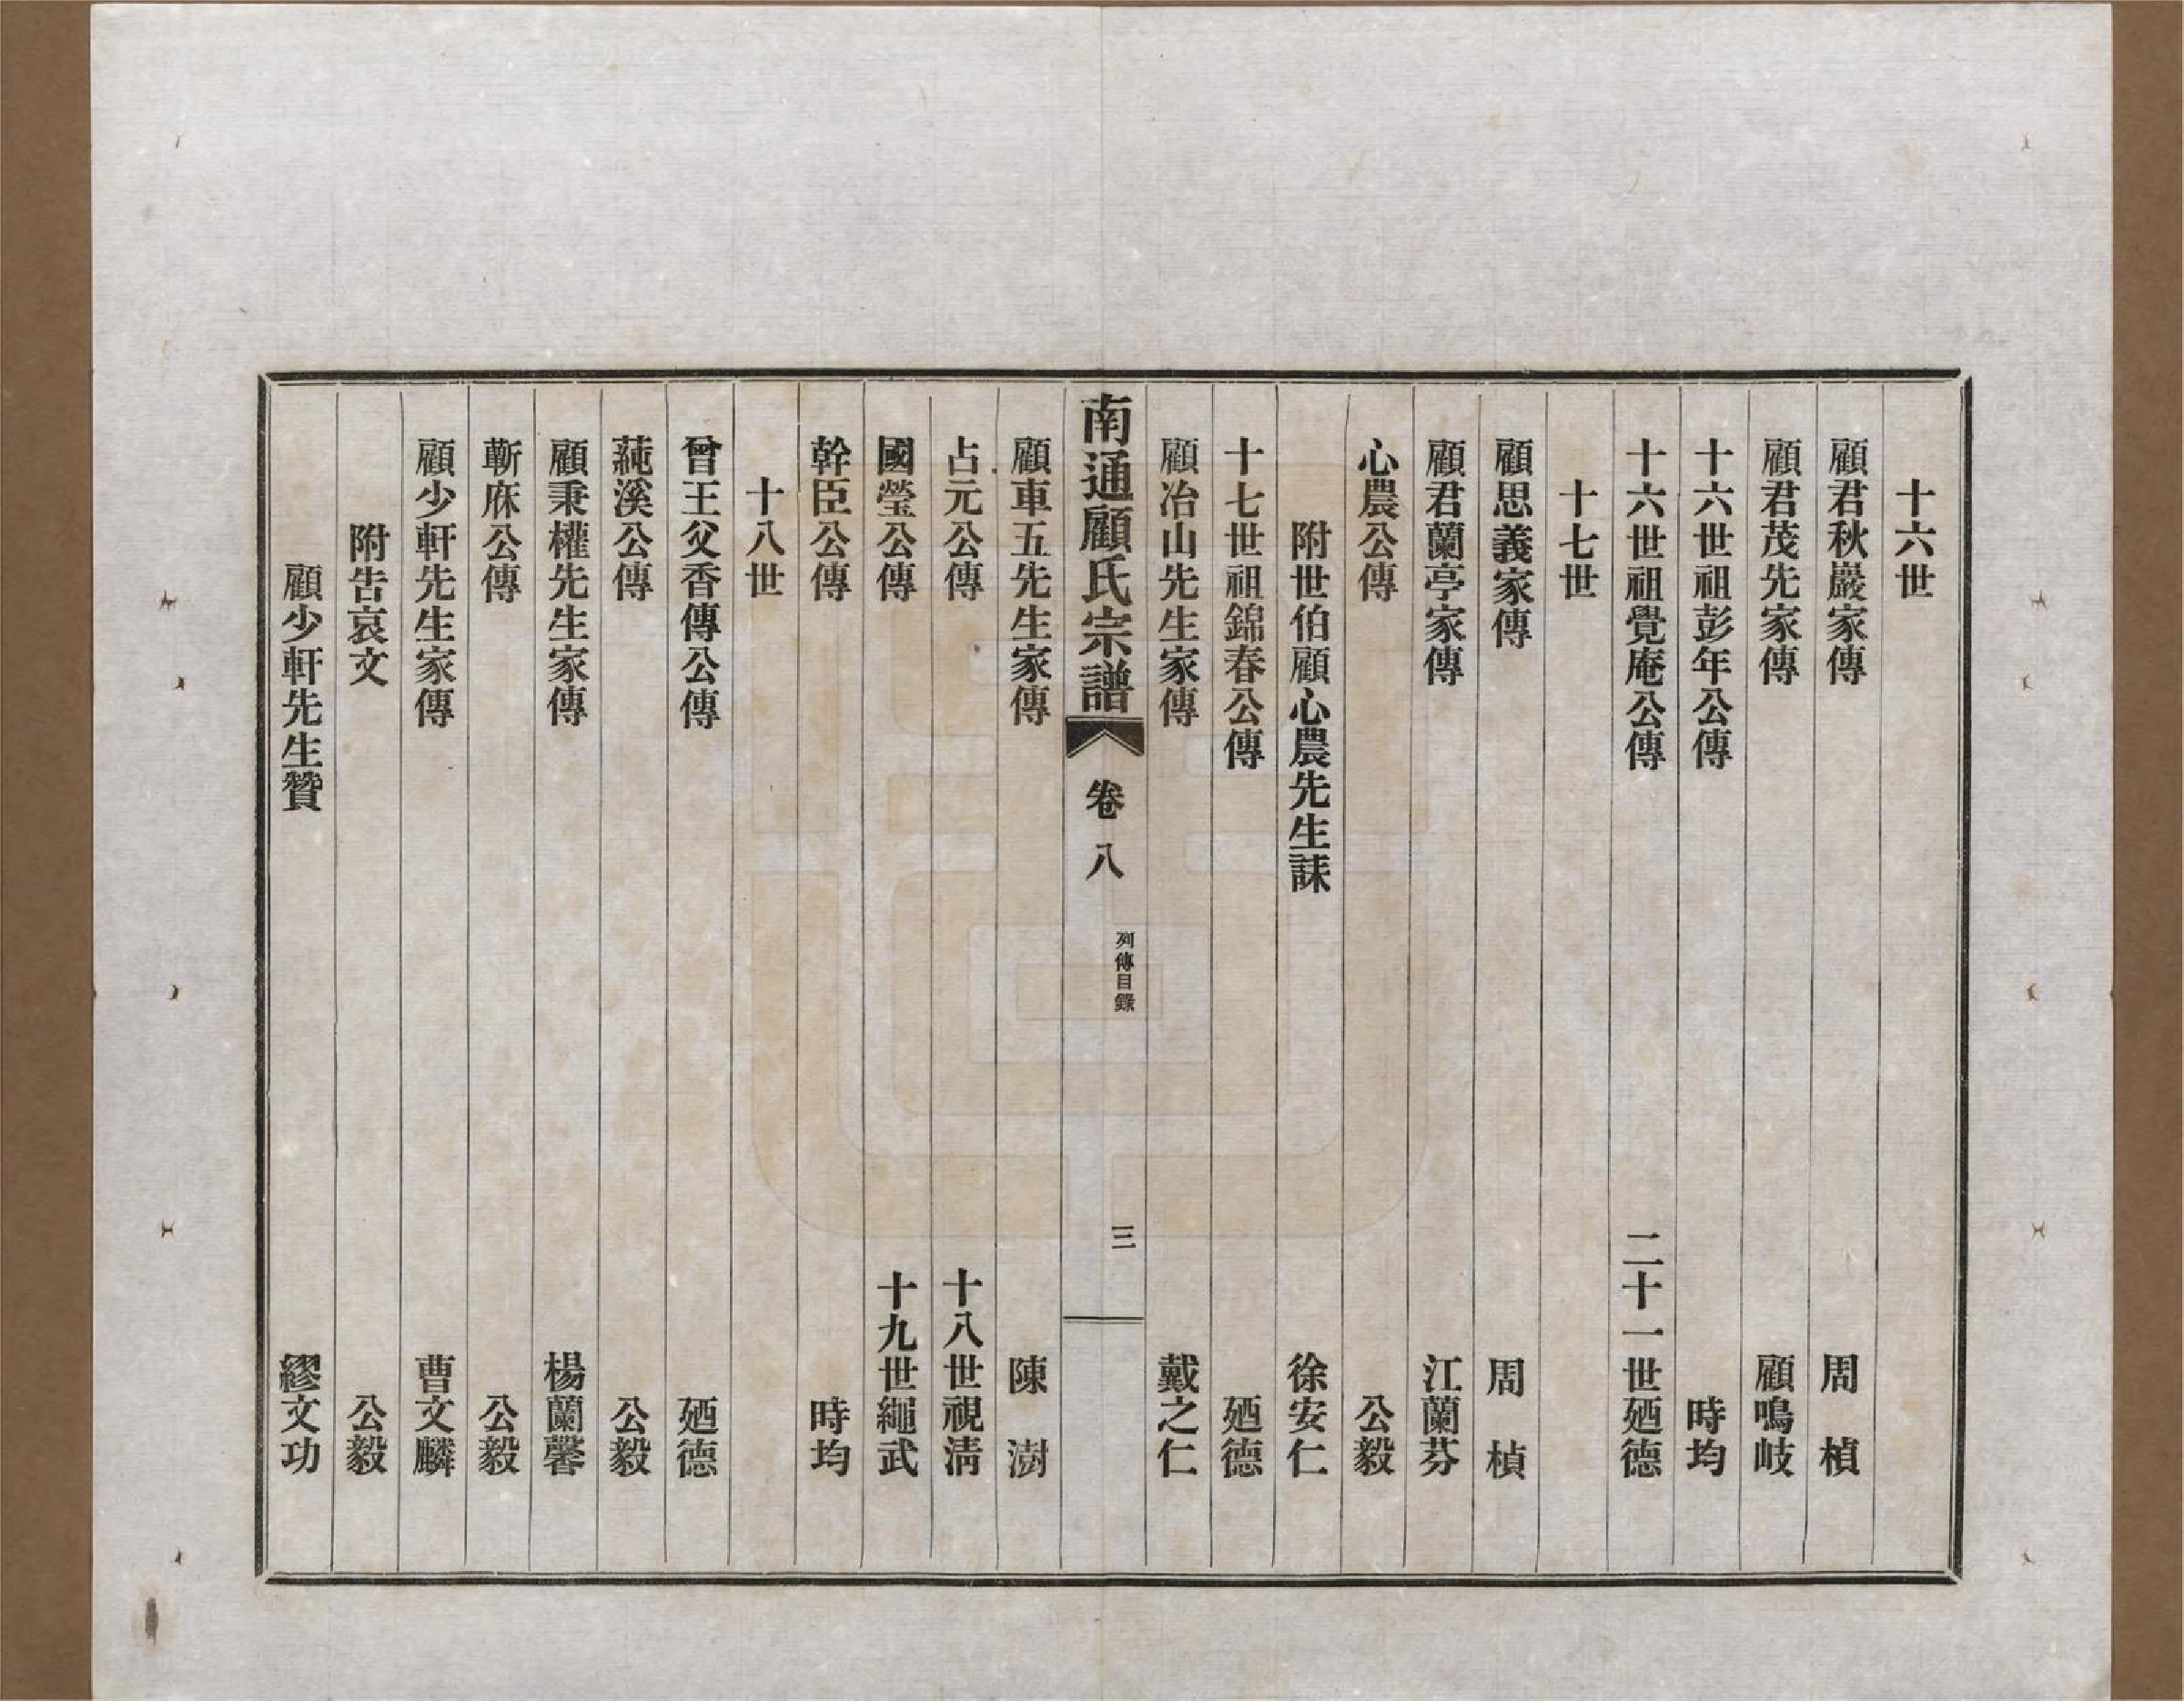 十六世
顧君秋巖家傳 周楨
顧君茂先家傳 顧鳴岐
十六世祖彭年公傳 時均
十六世祖覺庵公傳 二十一世廼德
十七世
顧思義家傳 周楨
顧君蘭亭家傳 江蘭芬
心農公傳 公毅
附世伯顧心農先生誄 徐安仁
十七世祖錦春公傳 廼德
顧冶山先生家傳 戴之仁
南通顧氏宗譜 卷八 列傳目錄 三
顧車五先生家傳 陳澍
占元公傳 十八世視清
國瑩公傳 十九世繩武
幹臣公傳 時均
十八世
曾王父香傳公傳 廼德
蒓溪公傳 公毅
顧秉權先生家傳 楊蘭馨
蘄庥公傳 公毅
顧少軒先生家傳 曹文麟
附告哀文 公毅
顧少軒先生贊 繆文功